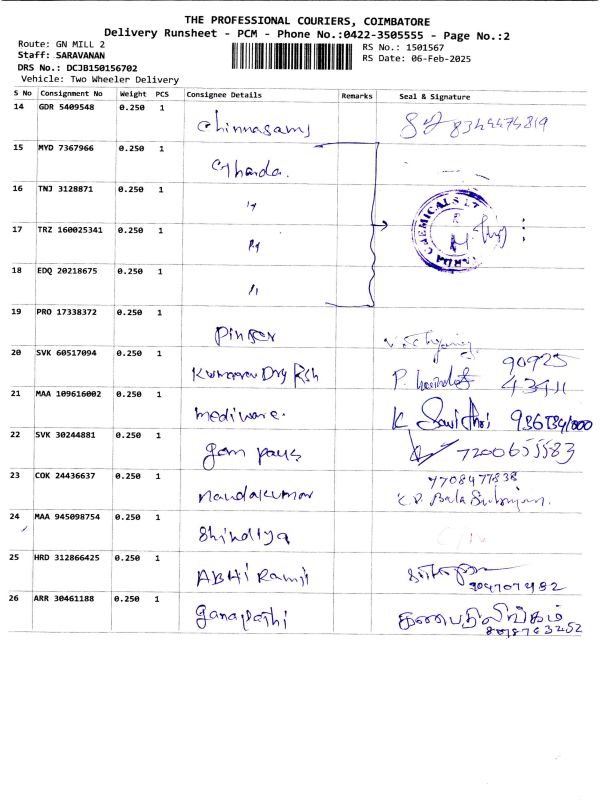 THE PROFESSIONAL COURIERS, COIMBATORE
Delivery Runsheet - PCM - Phone No.:0422-3505555 - Page No.:2
Route: GN MILL 2
RS No.: 1501567
Staff: SARAVANAN
RS Date: 06-Feb-2025
DRS No.: DCJB150156702
Vehicle: Two Wheeler Delivery
S No Consignment No Weight PCS Consignee Details Remarks Seal & Signature
14 GDR 5409548 0.250 1
Chinnasamy
15 MYD 7367966 0.250 1
Gharda.
16 TNJ 3128871 0.250 1
"
CHEMICALS
17 TRZ 160025341 0.250 1
"
18 EDQ 20218675 0.250 1
"
19 PRO 17338372 0.250 1
Pinger
20 SVK 60517094 0.250 1
90925
Kumaran Dry Fish P. 43411
21 MAA 109616002 0.250 1
mediware. K Savithri
22 SVK 30244881 0.250 1
7200655583
23 COK 24436637 0.250 1
7708477838
nandakumar
24 MAA 945098754 0.250 1
Shindiya
25 HRD 312866425 0.250 1
ABHi Ramji
26 ARR 30461188 0.250 1
ganapathi கணபதிலிங்கம்